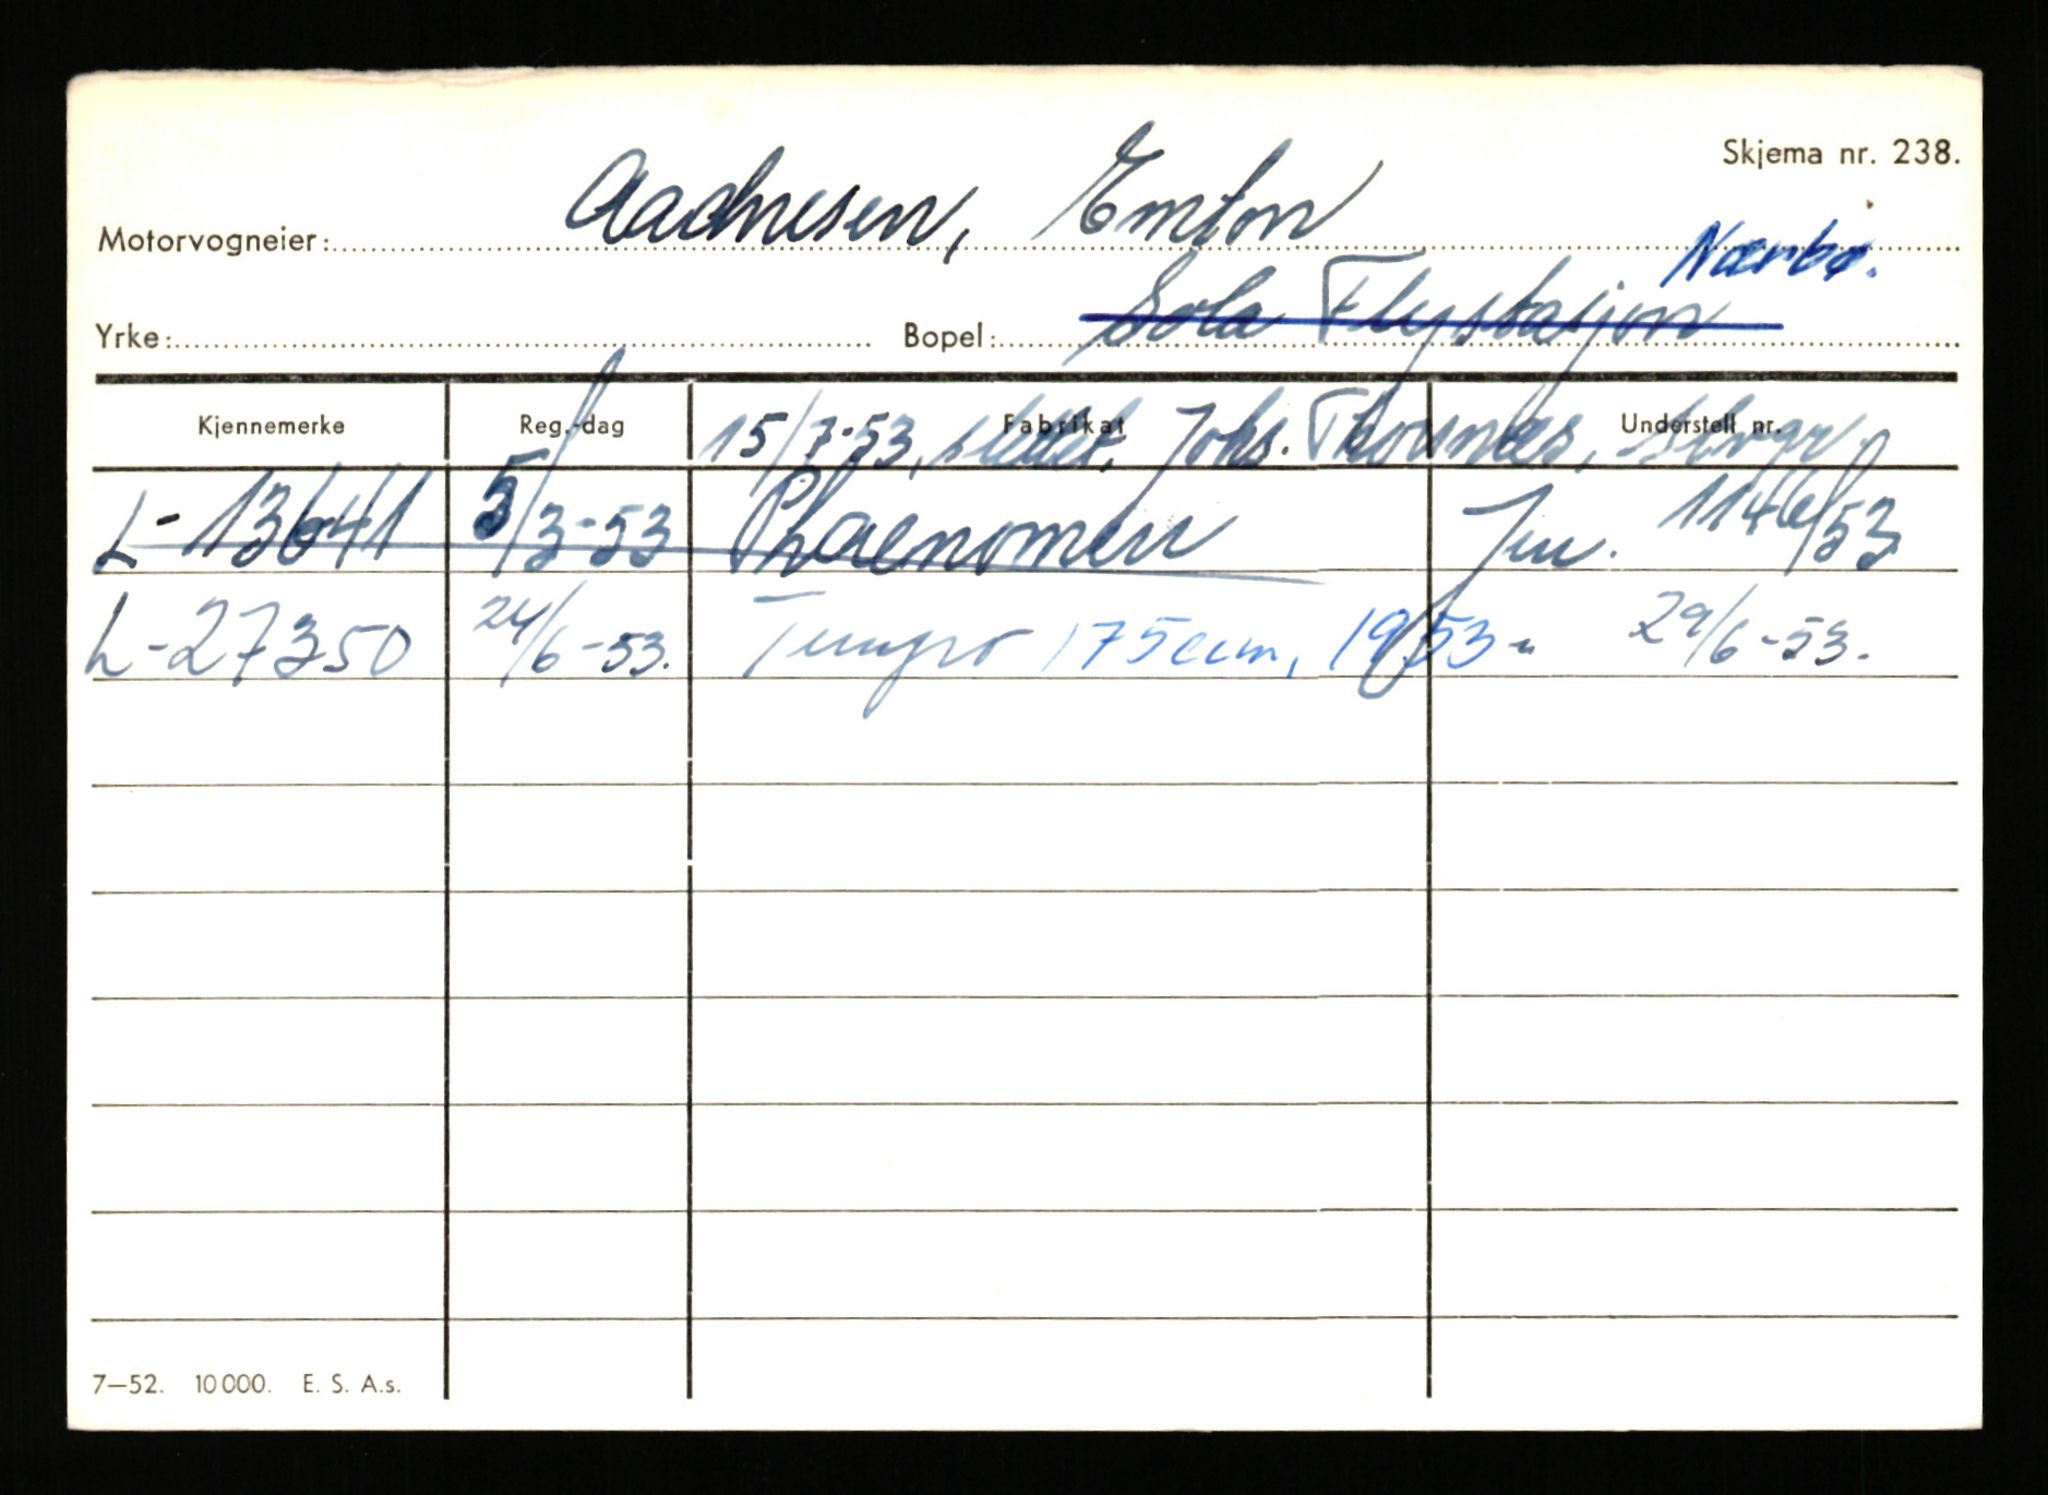 Skjema nr. 238.
Motorvogneier: Aadnesen, Emton
Nærbø.
Yrke: Bopel: Sola Flystasjon
Kjennemerke Reg.-dag Fabrikat Understell nr.
15/7-53, slettet, Johs. Thorsnes,
L-13641 5/3-53 Phaenomen Jnr. 1146/53
L-27350 24/6-53. Tempo 175ccm, 1953 29/6-53.
7—52. 10 000. E. S. A.s.